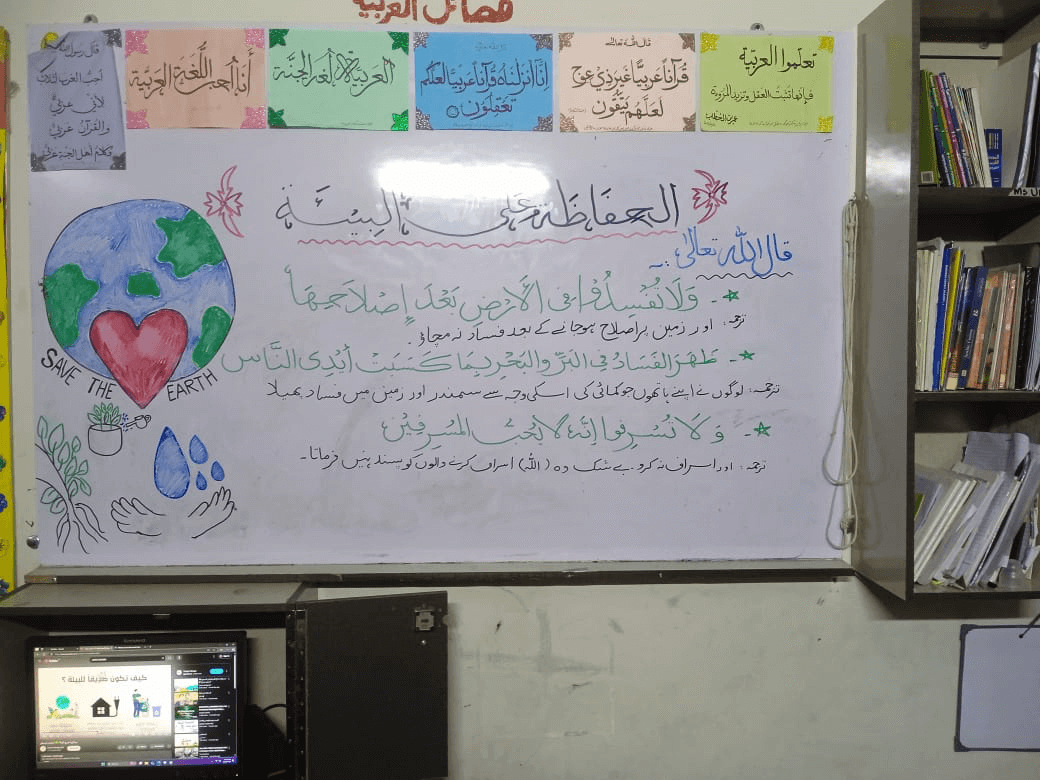 فضائل العربية
قال رسول الله
أحب العرب لثلاث
لأني عربي
والقرآن عربي
وكلام أهل الجنة عربي
أنا أحب اللغة العربية
العربية لأ لغة الجنة
قال الله تعالى
إنا أنزلناه قرآنا عربيا لعلكم
تعقلون
قال الله تعالى
قرآنا عربيا غير ذي عوج
لعلهم يتقون
تعلموا العربية
فإنها تثبت العقل وتزيد المروءة
عمر بن الخطاب
الحفاظة على البيئة
قال الله تعالى
وَلَا تُفْسِدُوا فِي الْأَرْضِ بَعْدَ إِصْلَاحِهَا
ترجمہ: اور زمین پر اصلاح ہوجانے کے بعد فساد نہ مچاؤ.
ظَهَرَ الْفَسَادُ فِي الْبَرِّ وَالْبَحْرِ بِمَا كَسَبَتْ أَيْدِي النَّاسِ
ترجمہ: لوگوں نے اپنے ہاتھوں جو کمائی کی اسکی وجہ سے سمندر اور زمین میں فساد پھیلا
وَلَا تُسْرِفُوا إِنَّهُ لَا يُحِبُّ الْمُسْرِفِيْنَ
ترجمہ: اور اسراف نہ کرو۔ بے شک وہ (اللہ) اسراف کرنے والوں کو پسند نہیں فرماتا۔
SAVE THE EARTH
كيف تكون صديقا للبيئة ؟